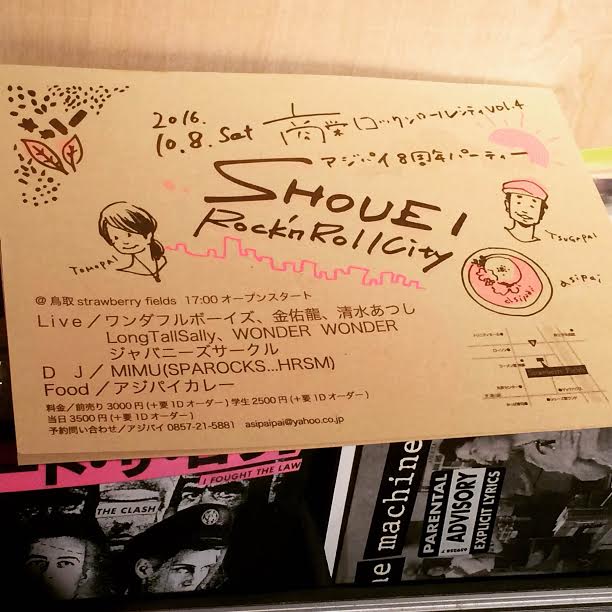 2016.
10.8. Sat 商栄ロックンロールシティ vol.4
アジパイ8周年パーティー
SHOUEI
Rock'n Roll City
Tomopai
Tsugapai
asipai
asipai
@ 鳥取 strawberry fields 17:00 オープンスタート
Live／ワンダフルボーイズ、金佑龍、清水あつし
LongTallSally、WONDER WONDER
ジャパニーズサークル
D J／MIMU(SPAROCKS...HRSM)
Food／アジパイカレー
料金／前売り 3000円 (＋要1Dオーダー) 学生 2500円 (＋要1Dオーダー)
当日 3500円 (＋要1Dオーダー)
予約問い合わせ／アジパイ 0857-21-5881 asipaipai@yahoo.co.jp
I FOUGHT THE LAW
THE CLASH
he machine
PARENTAL
ADVISORY
EXPLICIT LYRICS